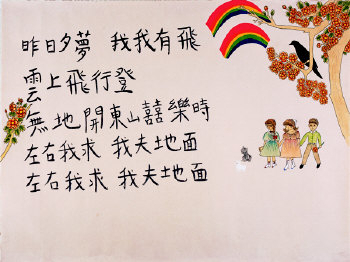 昨日夕夢 我我有飛
雲上飛行登
無地開東山囍樂時
左右我求 我夫地面
左右我求 我夫地面